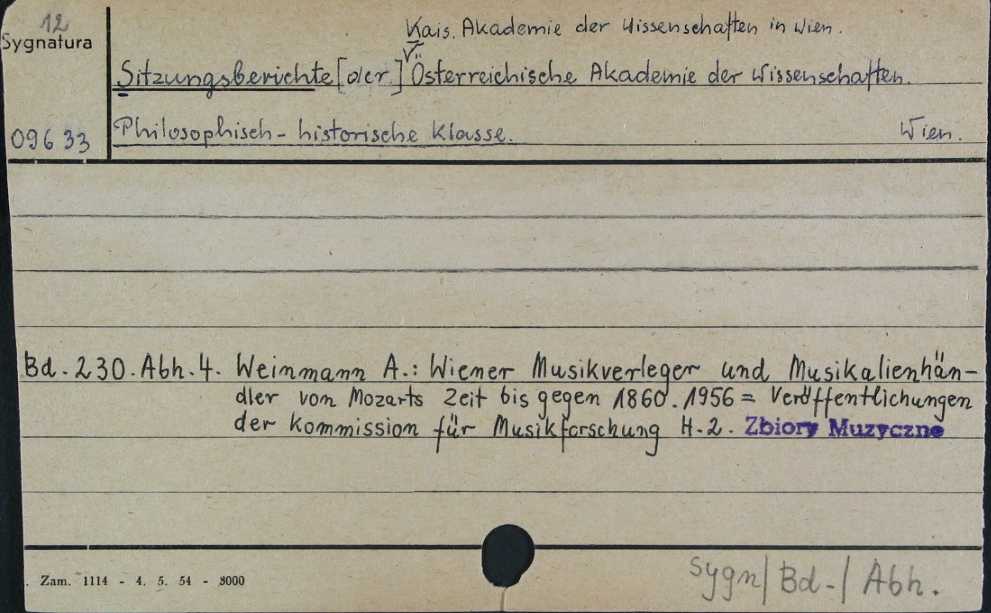 12
Sygnatura
Kais. Akademie der Wissenschaften in Wien.
Sitzungsberichte [der] Österreichische Akademie der Wissenschaften.
09633
Philosophisch-historische Klasse. Wien.
Bd. 230. Abh. 4. Weinmann A.: Wiener Musikverleger und Musikalienhän-
dler von Mozarts Zeit bis gegen 1860. 1956 = Veröffentlichungen
der Kommission für Musikforschung H. 2. Zbiory Muzyczne
Zam. 1114 - 4. 5. 54 - 3000
Sygn/ Bd-/ Abh.